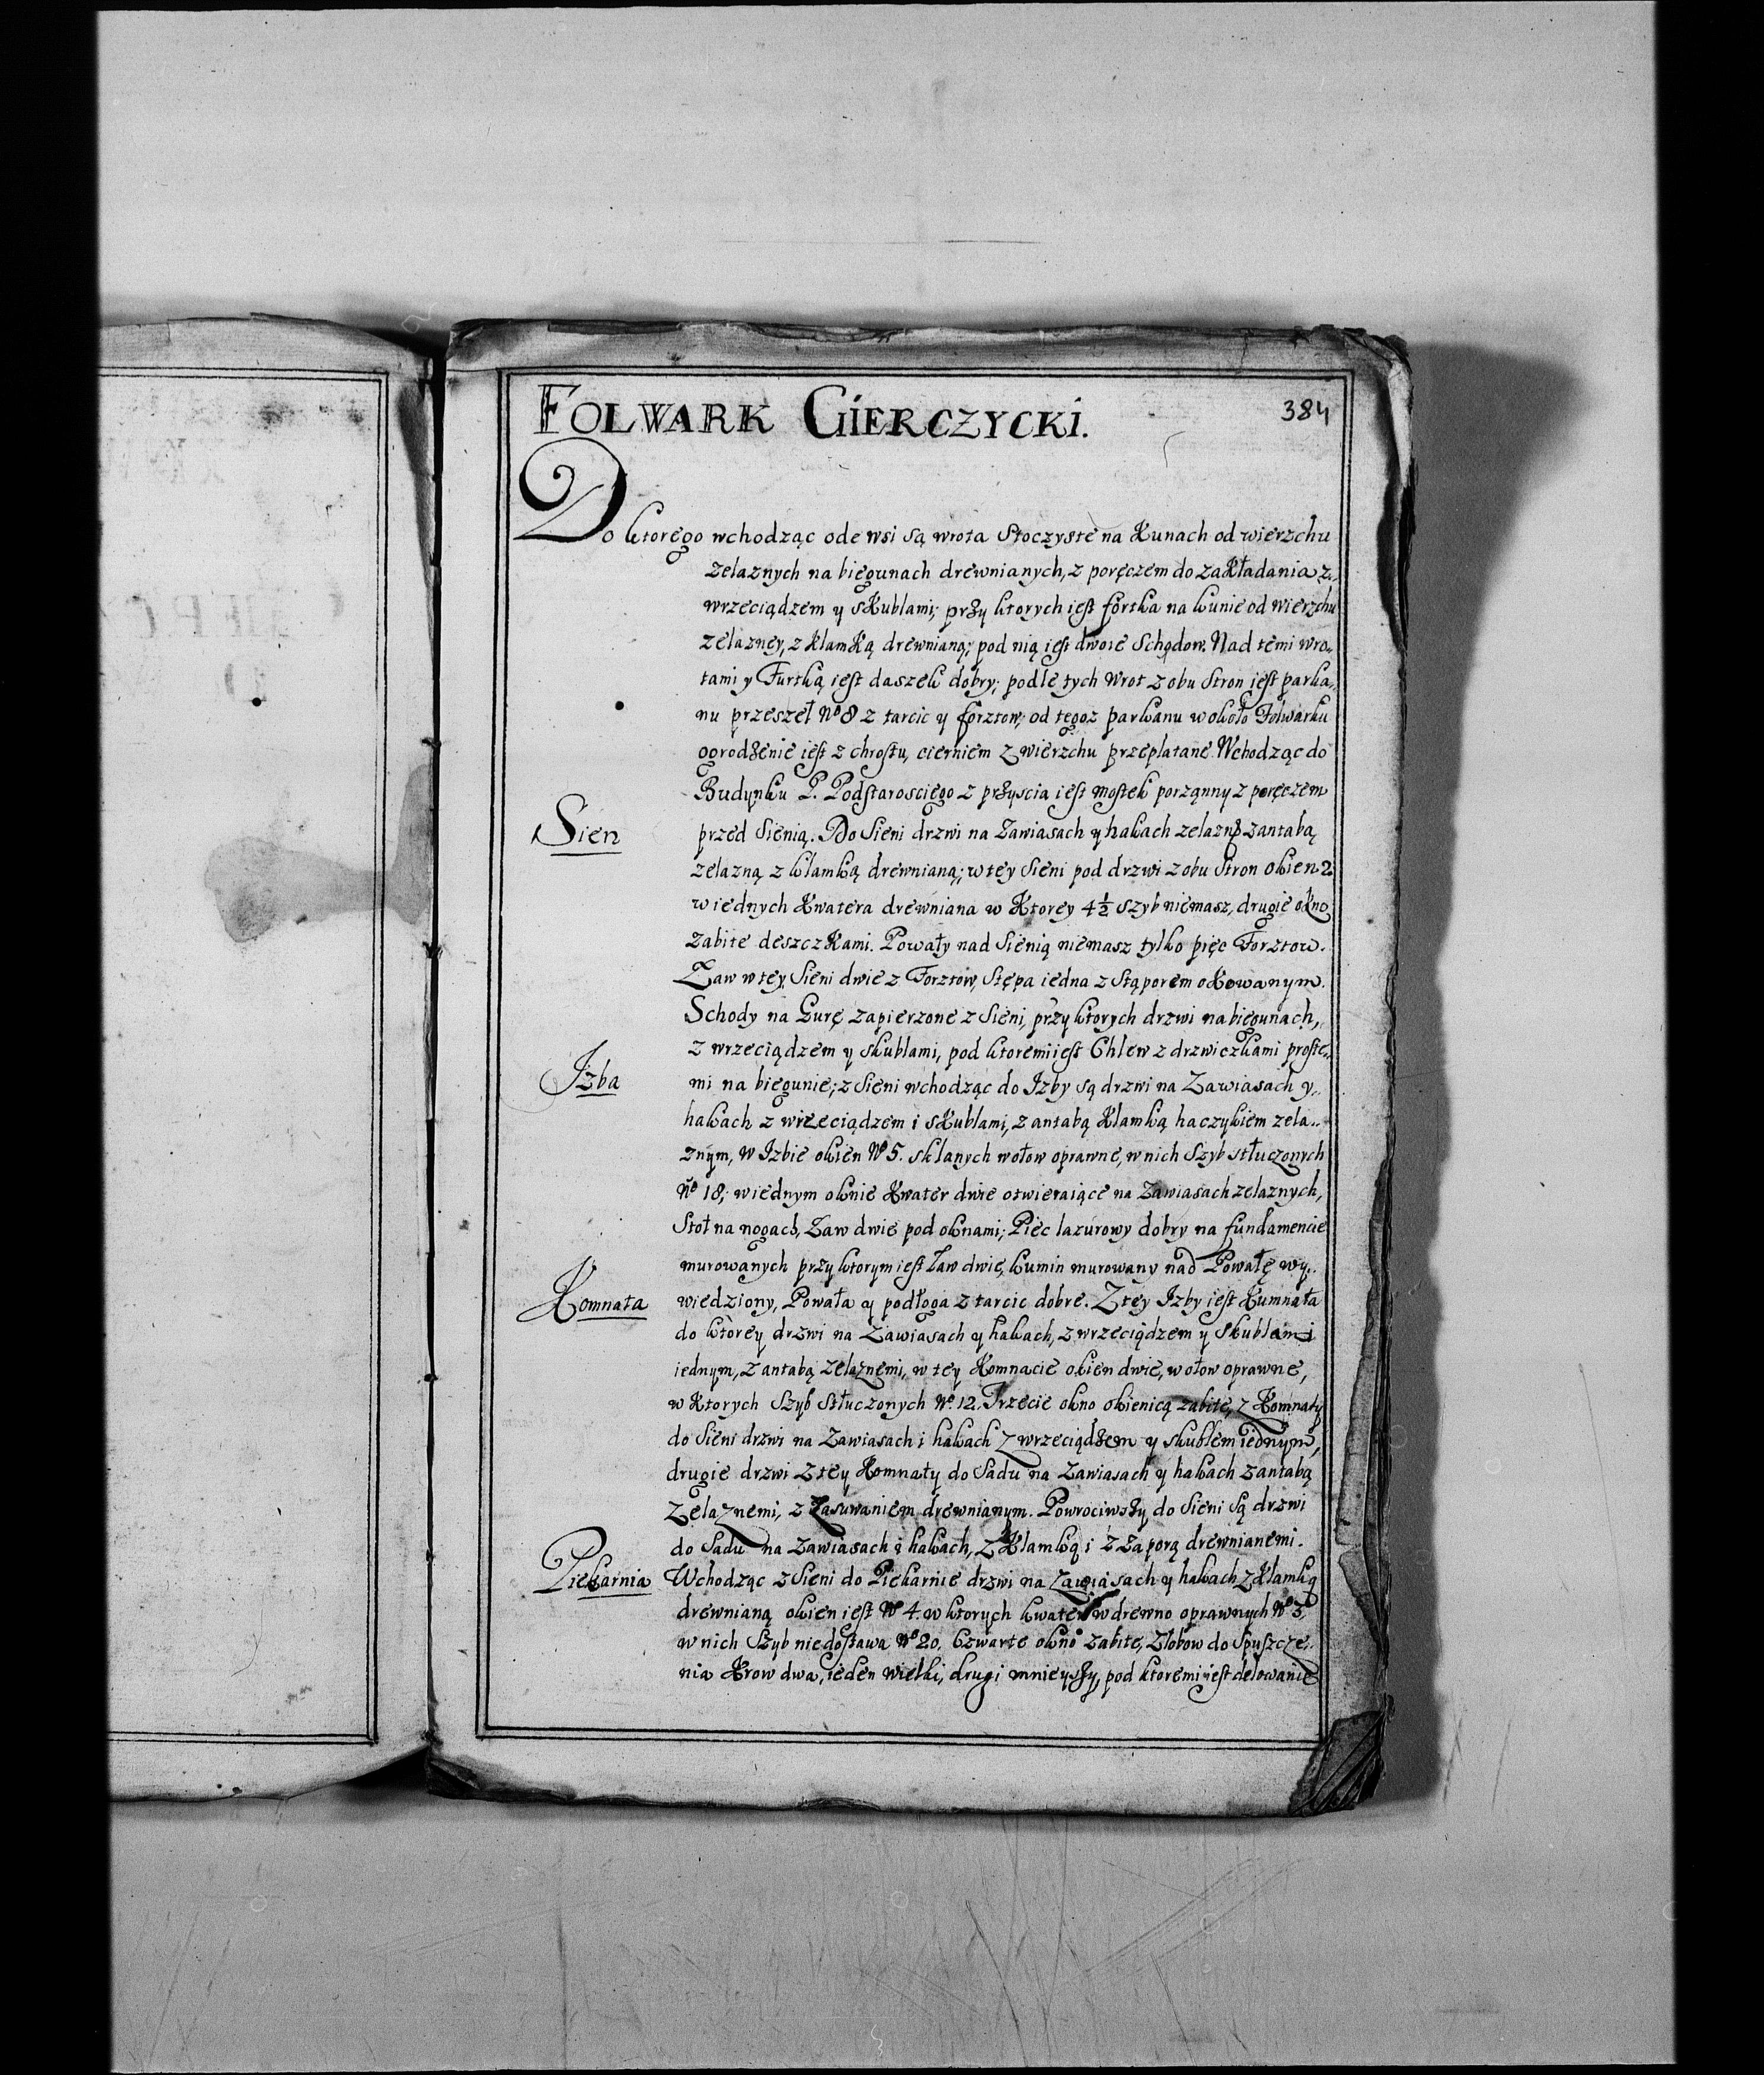 FOLWARK GIERCZYCKI.
384
Do ktorego wchodząc ode wsi są wrota stoczyste na Kunach od wierzchu
zelaznych na biegunach drewnianych, z poręczem do zakładania z..
wrzeciądzem y skublami; przy ktorych iest fortka na kunie od wierzchu
zelazney, z klamką drewnianą; pod nią iest dwoie Schodow. Nad temi wro..
tami y Furtką iest daszek dobry; podle tych Wrot z obu Stron iest parka..
nu przeseł No 8 z tarcic y forztow; od tegoz parkanu wokoło Folwarku
ogrodzenie iest z chrostu, cierniem z wierzchu przeplatane. Wchodząc do
Budynku P. Podstarosciego z przyscia iest mostek porządny z poręczem
Sien
przed Sienią. Do Sieni drzwi na Zawiasach y hakach zelazn z antabą
zelazną z klamką drewnianą; w tey Sieni pod drzwi z obu Stron okien 2
w iednych Kwatera drewniana w Ktorey 4½ szyb niemasz, drugie okno
zabite deszczkami. Powały nad Sienią niemasz tylko pięc Forztow.
Ław w tey Sieni dwie z Forztow, Stępa iedna z Stąporem okowanym.
Schody na Gurę zapierzone z Sieni, przy ktorych drzwi na biegunach,
z wrzeciądzem y skublami, pod ktoremi iest Chlew z drzwiczkami proste..
Izba
mi na biegunie; z Sieni wchodząc do Izby są drzwi na Zawiasach y..
hakach z wrzeciądzem i skublami, z antabą Klamką haczykiem zela..
znym, w Izbie okien No 5. sklanych w ołow oprawne, w nich Szyb stłuczonych
No 18; w iednym oknie Kwater dwie otwieraiące na Zawiasach zelaznych,
Stoł na nogach, Ław dwie pod oknami; Piec lazurowy dobry na fundamencie
murowanych przy ktorym iest Ław dwie, kumin murowany nad Powałę wy..
Komnata
wiedziony, Powała y podłoga z tarcic dobre. Z tey Izby iest Kumnata
do ktorey drzwi na Zawiasach y hakach, z wrzeciądzem y Skublami
iednym, z antabą zelaznemi, w tey Komnacie okien dwie, w ołow oprawne,
w Ktorych Szyb Stłuczonych No. 12. Trzecie okno okienicą zabite, z Komnaty
do Sieni drzwi na Zawiasach i hakach z wrzeciądzem y skublem iednym,
drugie drzwi z tey Komnaty do Sadu na Zawiasach y hakach z antabą
Zelaznemi, z Zasuwaniem drewnianym. Powrociwszy do Sieni są drzwi
do Sadu na Zawiasach i hakach, z Klamką i z zaporą drewnianemi.
Piekarnia
Wchodząc z Sieni do Piekarnie drzwi na Zawiasach y hakach z Klamką
drewnianą okien iest No 4. w ktorych kwater w drewno oprawnych No 3,
w nich Szyb niedostawa No 20. Czwarte okno zabite, Złobow do Spuszcze..
nia Krow dwa, ieden wielki, drugi mnieyszy, pod ktoremi iest delowanie